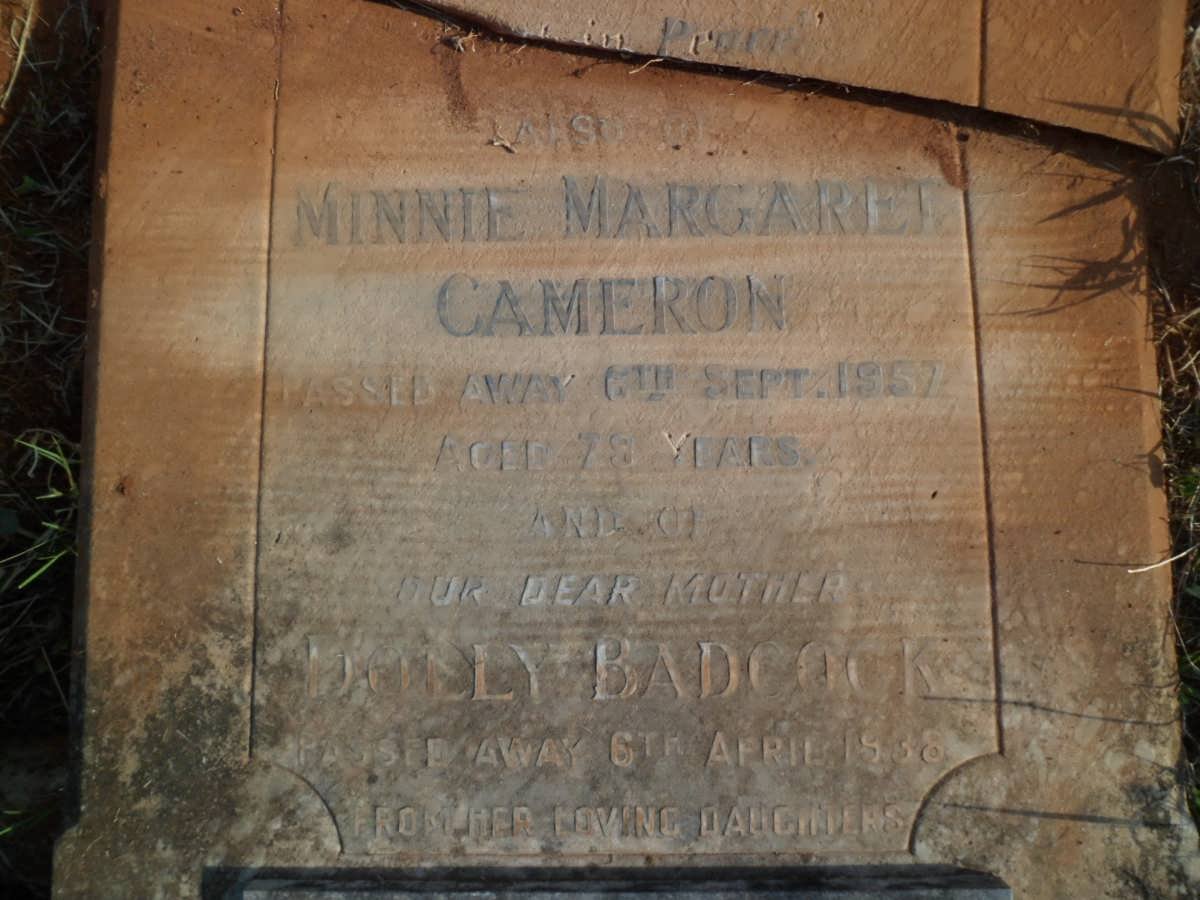 in Peace
ALSO OF
MINNIE MARGARET
CAMERON
PASSED AWAY 6TH SEPT. 1957
AGED 78 YEARS.
AND OF
OUR DEAR MOTHER
DOLLY BADCOCK
PASSED AWAY 6TH APRIL
FROM HER LOVING DAUGHTERS